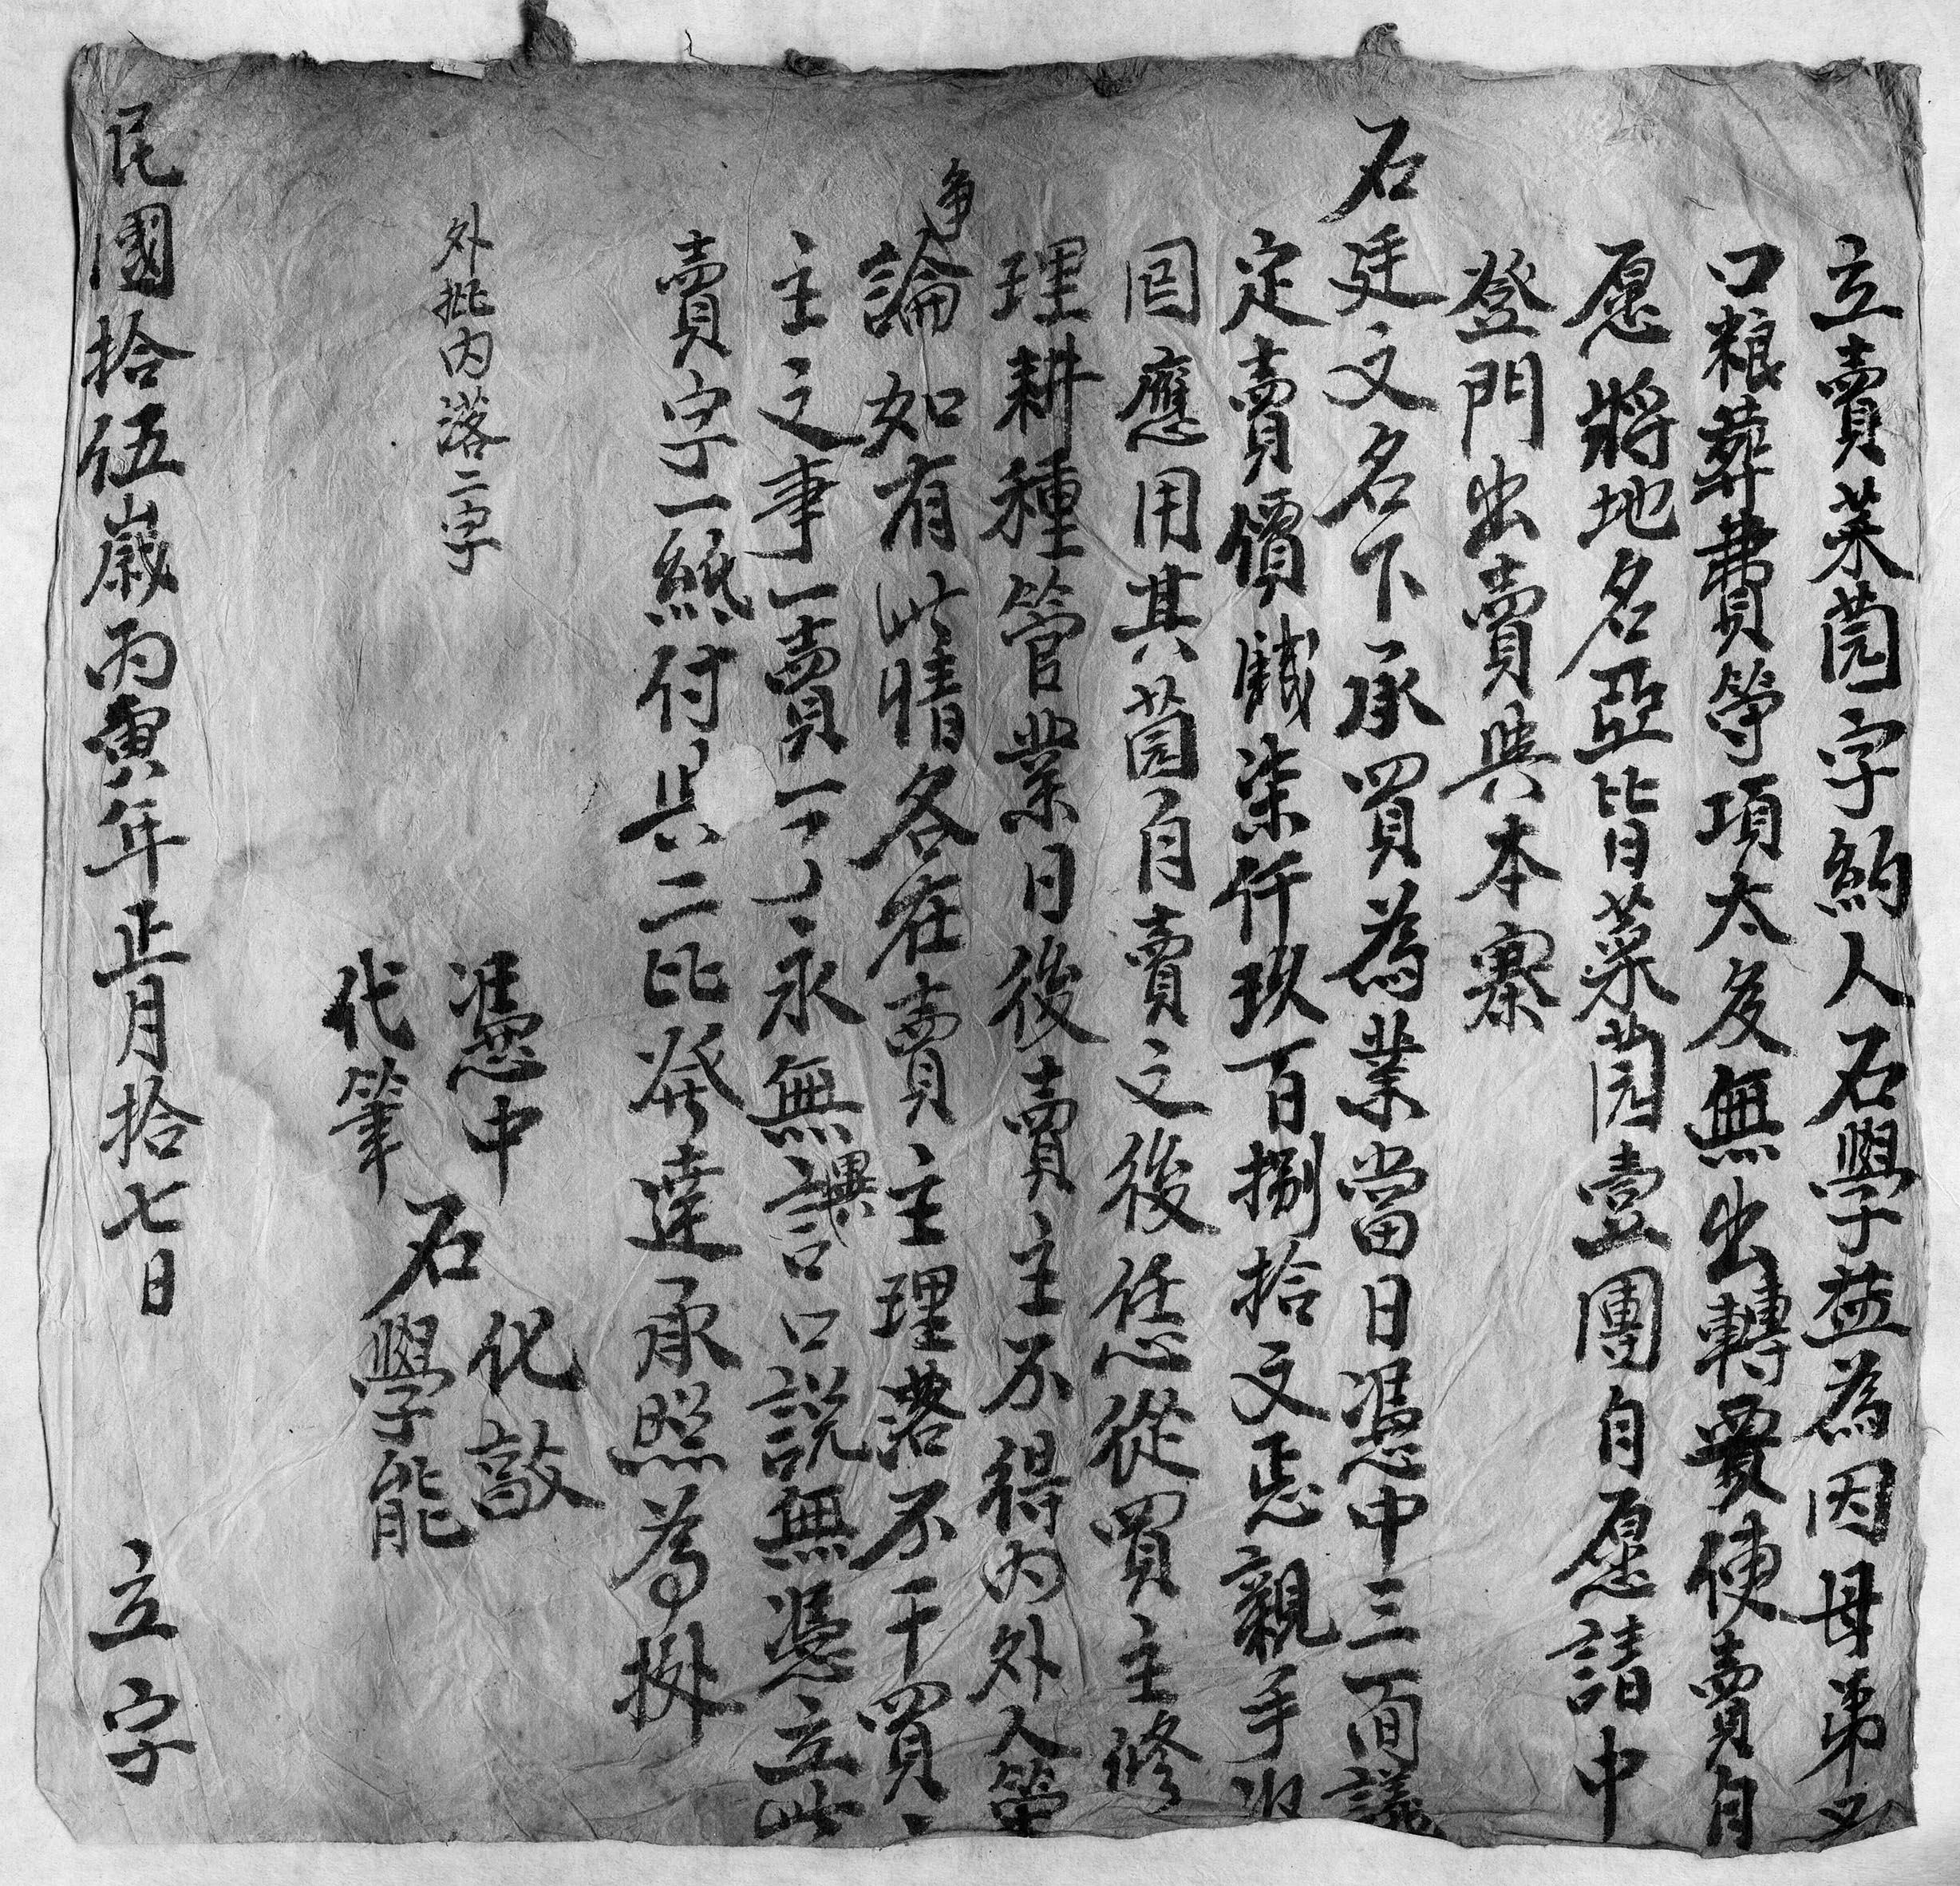 立賣菜園字約人石學益為因母弟又
口粮葬費等項太多無出轉賣使賣自
愿將地名亞皆菜园壹團自愿請中
登門出賣與本寨
石廷文名下承買為業當日憑中三面議
定賣價錢柒仟玖百捌拾文悉親手
回應用其园自賣之後任憑從買主修
理耕種管業日後賣主不得內外人等
爭論如有此情各在賣主理落不干買
主之事一賣一了永無異言口説無憑立此
賣字一紙付與二比發達承照為據
外批内落二字
憑中 石化敨
代筆 石學能
民國拾伍歲丙寅年正月拾七日 立字